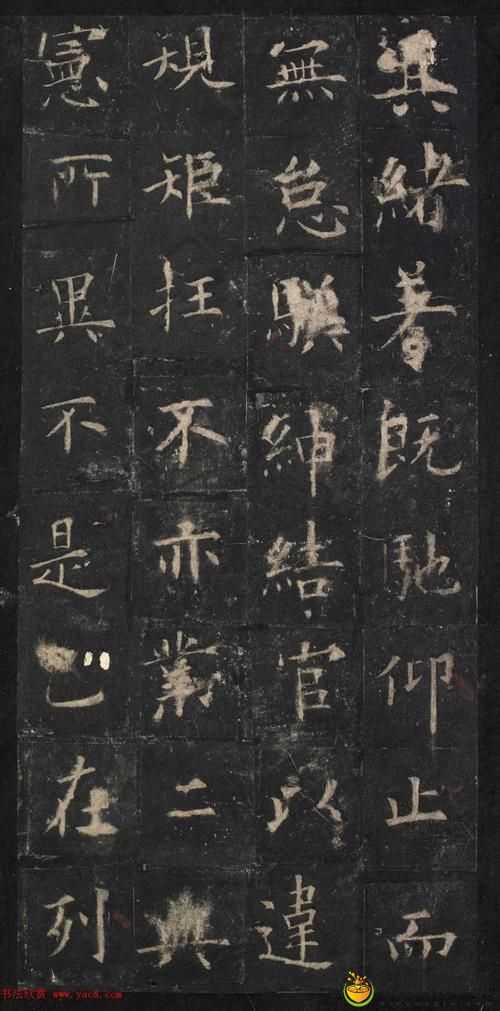 緒著既馳仰止而
無怠紳結官以違
規矩抂不亦業二典
憲所異不是在列
书法欣赏 www.yac8.com